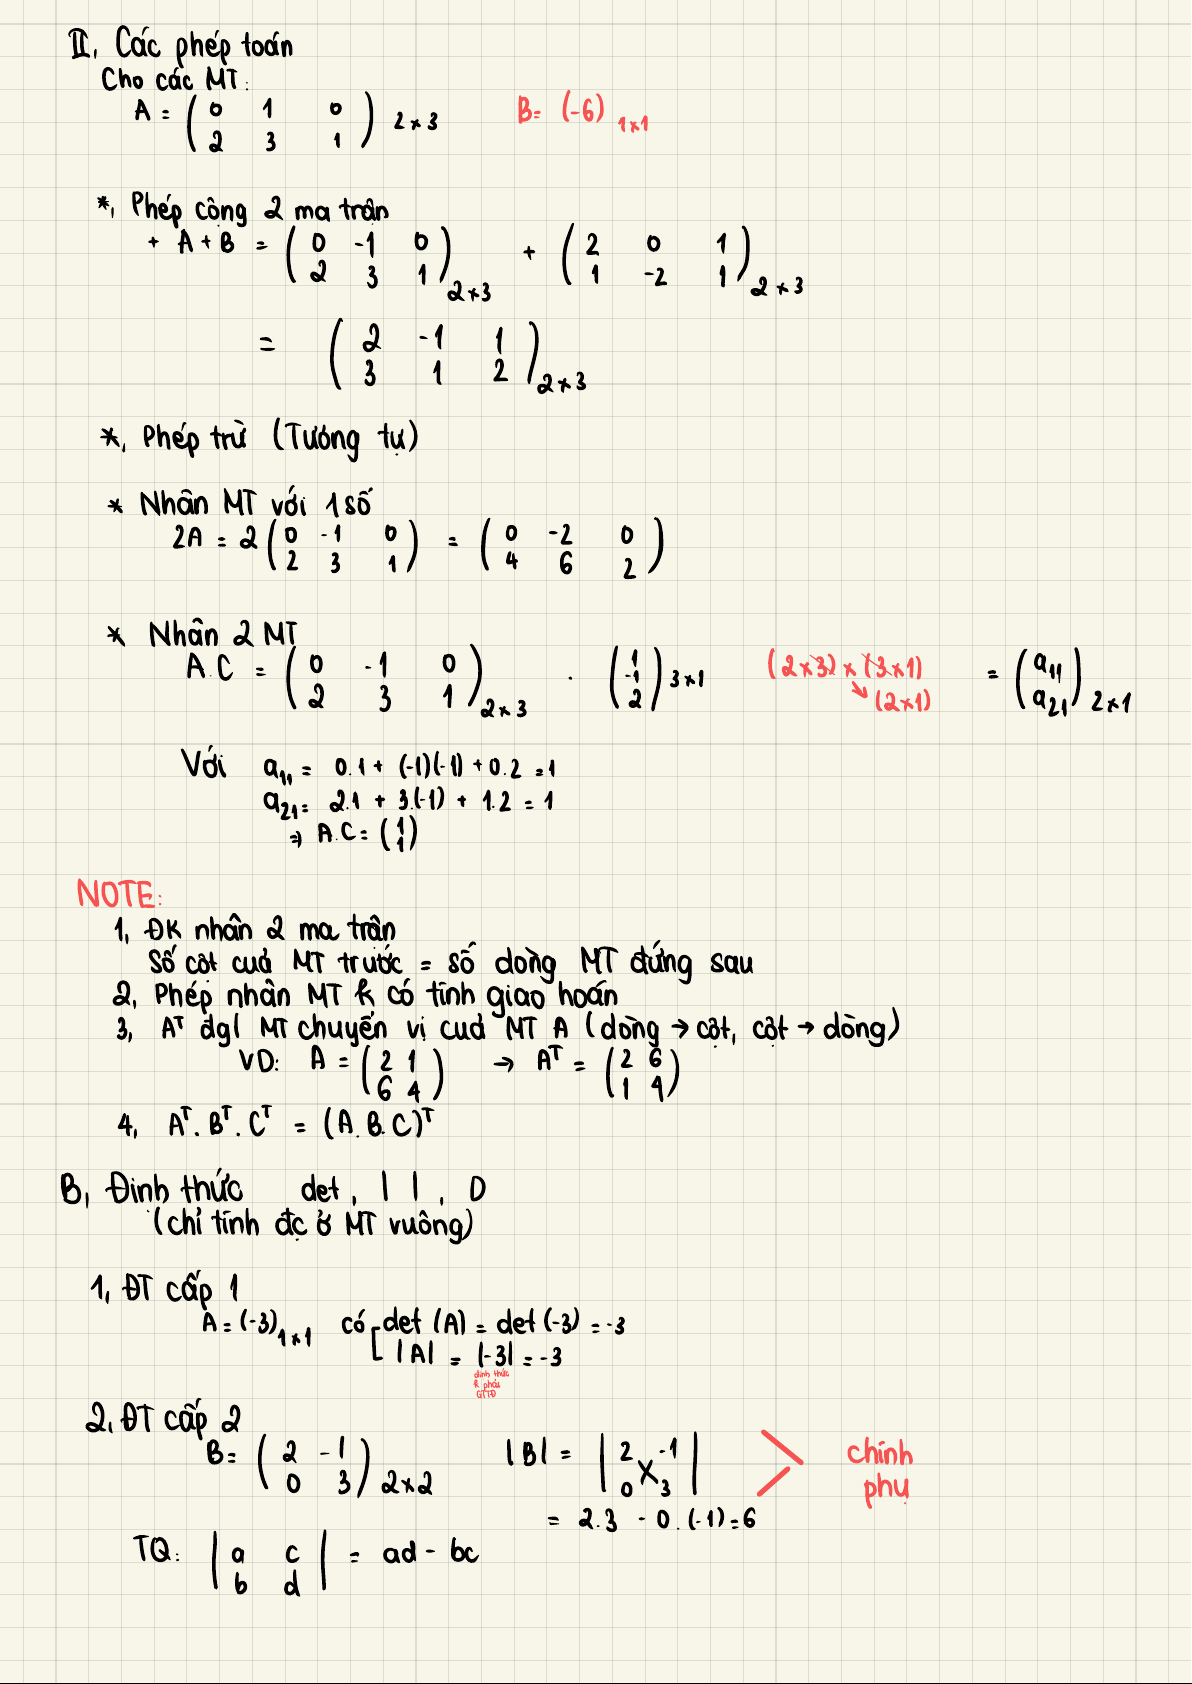 II, Các phép toán
Cho các MT:
A = ( 0 1 0 ; 2 3 1 ) 2×3 B= (-6) 1×1
*, Phép cộng 2 ma trận
+ A + B = ( 0 -1 0 ; 2 3 1 ) 2×3 + ( 2 0 1 ; 1 -2 1 ) 2×3
= ( 2 -1 1 ; 3 1 2 ) 2×3
*, Phép trừ (Tương tự)
* Nhân MT với 1 số
2A = 2 ( 0 -1 0 ; 2 3 1 ) = ( 0 -2 0 ; 4 6 2 )
* Nhân 2 MT
A.C = ( 0 -1 0 ; 2 3 1 ) 2×3 . ( 1 ; -1 ; 2 ) 3×1 (2×3) × (3×1) ↘ (2×1) = ( a11 ; a21 ) 2×1
Với a11 = 0.1 + (-1)(-1) + 0.2 = 1
a21 = 2.1 + 3.(-1) + 1.2 = 1
⇒ A.C = ( 1 ; 1 )
NOTE:
1, ĐK nhân 2 ma trận
Số cột của MT trước = số dòng MT đứng sau
2, Phép nhân MT k có tính giao hoán
3, Aᵀ đgl MT chuyển vị của MT A (dòng → cột, cột → dòng)
VD: A = ( 2 1 ; 6 4 ) → Aᵀ = ( 2 6 ; 1 4 )
4, Aᵀ. Bᵀ. Cᵀ = (A.B.C)ᵀ
B, Định thức det, | |, D
(chỉ tính đc ở MT vuông)
1, ĐT cấp 1
A = (-3) 1×1 có [ det (A) = det (-3) = -3
|A| = |-3| = -3
định thức
k phải
GTTĐ
2, ĐT cấp 2
B= ( 2 -1 ; 0 3 ) 2×2 |B| = | 2 -1 ; 0 3 | > chính
phụ
= 2.3 - 0.(-1) = 6
TQ: | a c ; b d | = ad - bc